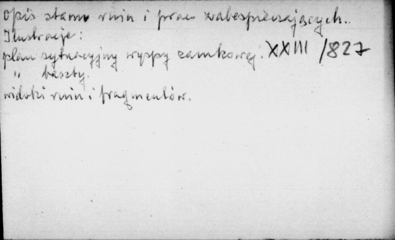 opis stanu ruin i prac zabezpieczających.
Ilustracje:
plan sytuacyjny wyspy zamkowej. XXIII/827
" baszty.
widoki ruin i fragmentów.